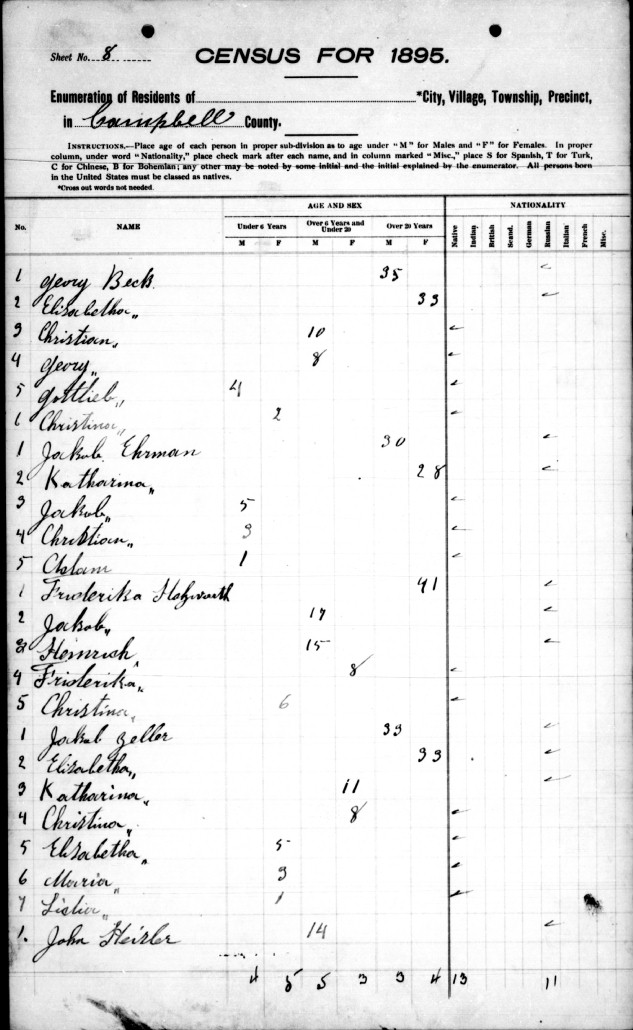 Sheet No. 8
CENSUS FOR 1895.
Enumeration of Residents of *City, Village, Township, Precinct,
in Campbell County.
INSTRUCTIONS.—Place age of each person in proper sub-division as to age under "M" for Males and "F" for Females. In proper
column, under word "Nationality," place check mark after each name, and in column marked "Misc.," place S for Spanish, T for Turk,
C for Chinese, B for Bohemian; any other may be noted by some initial and the initial explained by the enumerator. All persons born
in the United States must be classed as natives.
*Cross out words not needed.
AGE AND SEX NATIONALITY
No. NAME Under 6 Years Over 6 Years and Under 20 Over 20 Years Native Indian British Scand. German Russian Italian French Misc.
M F M F M F
1 Georg Beck 35
2 Elisabetha " 33
3 Christian " 10
4 Georg " 8
5 Gottlieb " 4
6 Christina " 2
1 Jakob Ehrman 30
2 Katharina " 28
3 Jakob " 5
4 Christian " 3
5 Adam 1
1 Friderika 41
2 Jakob " 17
3 Heinrich " 15
4 Friderika " 8
5 Christina " 6
1 Jakob Zeller 33
2 Elisabetha " 33
3 Katharina " 11
4 Christina " 8
5 Elisabetha " 5
6 Maria " 3
7 " 1
1. John Heisler 14
4 5 5 3 3 4 13 11